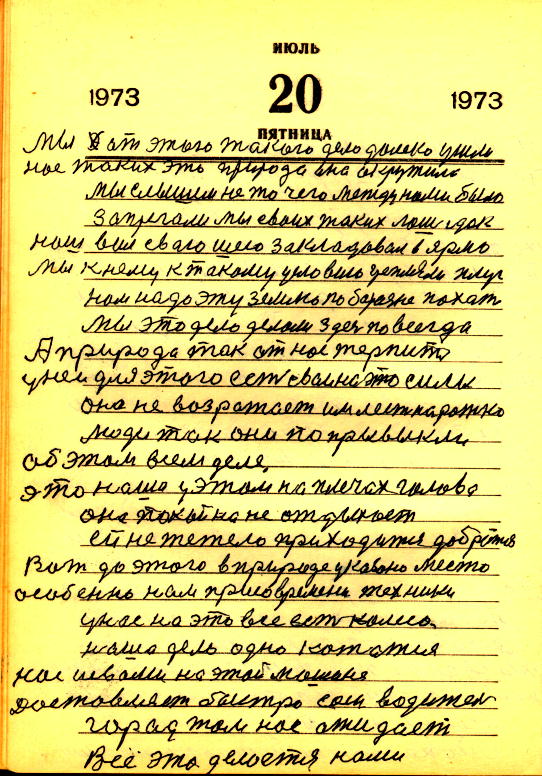 ИЮЛЬ
1973 20 1973
ПЯТНИЦА
Мы от этого такого дело далеко ушли
нас таких это природа она окружила
мы слышим не то чего между нами было
Запрегали мы своих таких лошадок
наш вол сваго шею закладовал в ярмо
Мы к нему к такому цепляли плуг
нам надо эту землю по борозне похать
мы это дело делаем здесь повсегда
А природа так от нас терпить
у ней для этого есть свои на это силы
она не возражает им
люди так они попрывыкли
об этом всем деле,
это наша у этом на плечах голова
она покойна не отдыхает
ей не тежело приходится добр
Вот до этого в природе указано место
особенно нам при времени техники
у нас на это все есть колесо
наша дело одно кататся
нас с вами на этой машине
доставляет быстро сам водител
город там нас ожидает
Всё это делается нами